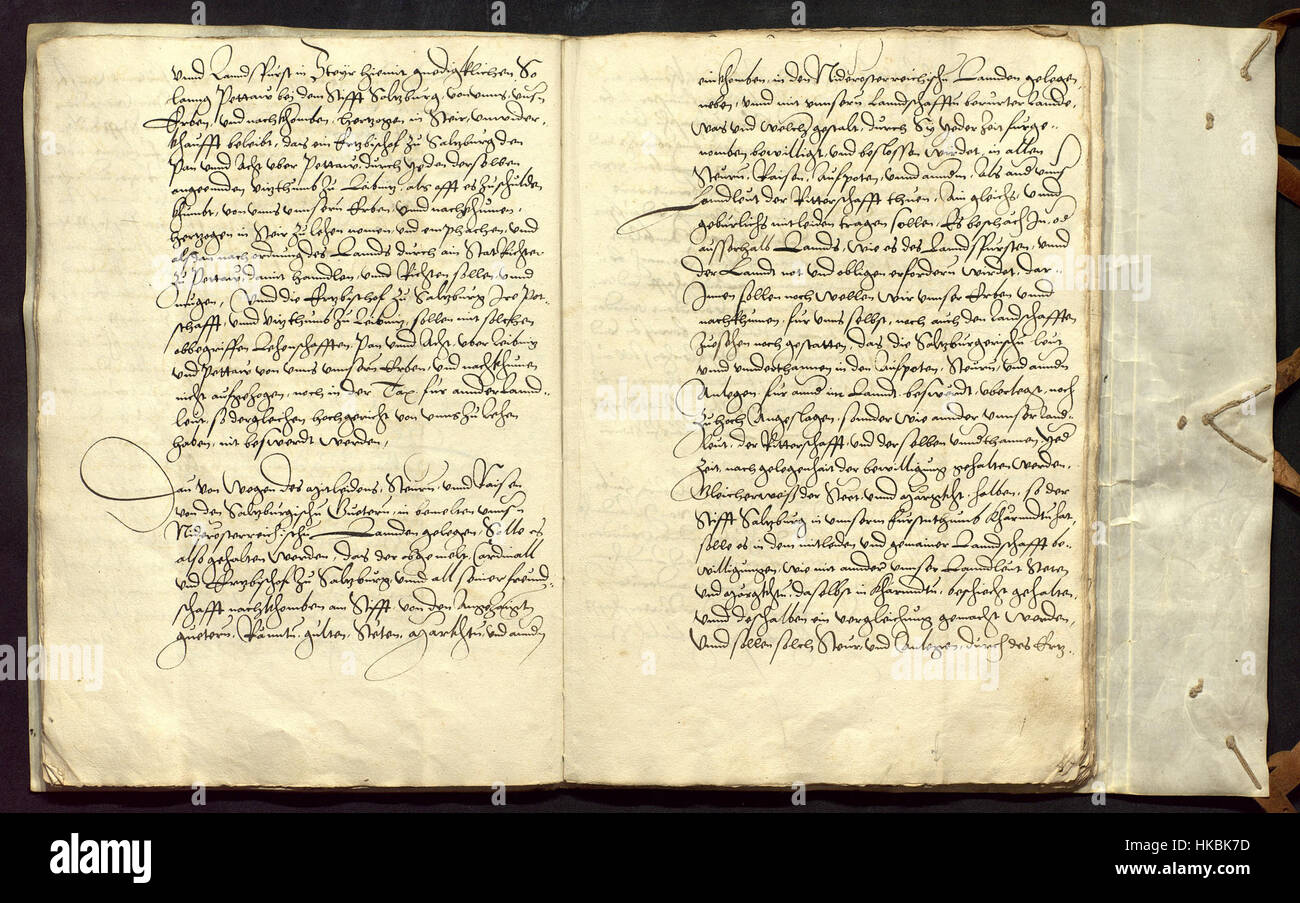 vnnd Landsfürst in Steyr hiemit gnedigklichen, So
lanng Pettaw bei dem Stifft Saltzburg, von vnns, vnsern
Erben, vnd nachkhomben, hertzogen in Steir, vnwider-
khaufft beleibt, das ein Ertzbischof zu Saltzburg den
Pan vnd Acht vber Pettaw, durch yeden derselben
angeenden vitzthumb zu Leibnitz, als offt es zuschulden
khumbt, von vnns vnnsern Erben, vnd nachkhumen,
hertzogen in Steir zu lehen nemen, vnd emphachen, vnd
alsdan nach ordnung des Lannds durch ain Stat Richter
zu Pettaw, damit hanndlen, vnd Richten sollen, vnnd
mugen, Vnnd die Ertzbischof zu Saltzburg Ire Pot-
schafft, vnd vitzthumb zu Leibnitz, sollen mit solchen
obbegriffen Lehenschafften, Pan vnnd Acht, vber Leibnitz
vnd Pettaw von vnns vnnsern Erben, vnd nachkhumen
nicht aufgezogen, noch in der Tax für annder Lannd-
leut, so dergleichen hochgericht von vnns zu lehen
haben, nit beswerdt werden,
Dan von wegen des mitleidens, Steurn, vnnd Raisen
von den Saltzburgischen Guetern, in bemelten vnnsern
Niderösterreichischen Lannden gelegen, Solle es
also gehalten werden, das der obgemelt Cardinall
vnd Ertzbischof zu Saltzburg, vnnd all seiner freund-
schafft nachkhomben am Stifft von den Angezaigten
guetern, Rännten, gülten, Steten, Märckhten, vnd anndern
einkhomben, in den Niderösterreichischen Lannden gelegen,
neben, vnnd mit vnnsern Landschafften berürter Lannde,
was vnd welcher gestalt, durch Sy yeder Zeit fürge-
nomben bewilligt, vnd beslossen wirdet, in allen
Steurn, Raisen, Aufpoten, vnnd anndern, als annder vnnser
Landleut der Ritterschafft thuen, Ain gleichs, vnnd
gebürlichs mitleiden tragen sollen, Es beschach In, oder
ausserhalb Lannds, wie es des Landsfürsten, vnnd
der Lannde not vnd obligen erfordern wirdet, dar-
Innen sollen noch wellen Wir vnnser Erben vnnd
nachkhumen, für vnns selbst, noch auch den landschafften
zusehen noch gestatten, das die Saltzburgerischen leut
vnnd vnnderthannen in den Aufpoten, Steurn, vnd anndern
Anlegen für annder im Lannde, beswerdt, vberlegt, noch
zu hoch Angeslagen, sonnder wie annder vnnser land-
leut, der Ritterschafft, vnd derselben vnnderthannen yeder
Zeit, nach gelegenhait der bewilligung gehalten werden,
Gleicherweis der Stet, vnnd Märckht, halben, so der
Stifft Saltzburg in vnnserm Fürstenthumb Khärnndten hat,
solle es in dem mitleiden vnd gemainer Lanndschafft be-
willigungen, wie mit annder vnnser Landleut Steten
vnd Märckhten, daselbst in Khärnndten, beschiecht gehalten,
vnnd deshalben ein vergleichung gemacht werden,
Vnnd sollen solch Steur, vnd Anlegen, durch des Ertz-
alamy
Image ID: HKBK7D
www.alamy.com